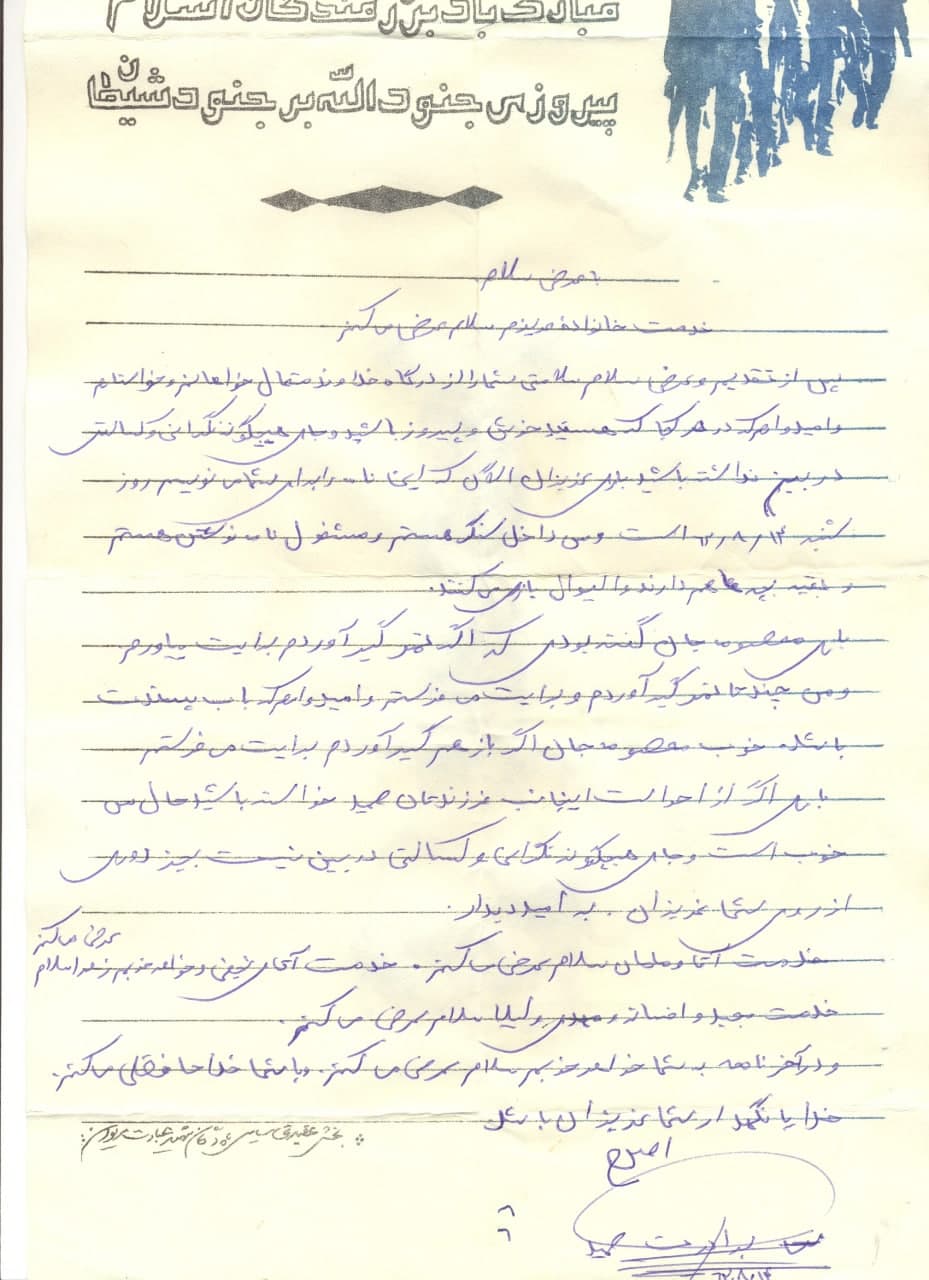 مبارک باد بر رزمندگان اسلام
پیروزی جنود الله بر جنود شیطان
با عرض سلام
خدمت خانواده عزیزم سلام عرض می کنم.
پس از تقدیم و عرض سلام سلامتی شما را از درگاه خداوند متعال خواهانم و خواستارم
و امیدوارم که در هر کجا که هستید خوش و پیروز باشید و جای هیچگونه نگرانی و کسالتی
در بین نداشته باشید باری عزیزان الان که این نامه را برای شما می نویسم روز
شنبه ۶۲/۸/۱۴ است و من داخل سنگر هستم و مشغول نامه نوشتن هستم
و بقیه بچه ها هم دارند والیبال بازی می کنند.
باری معصومه جان گفته بودی که اگر تمر گیر آوردم برایت بیاورم
و من چند تا تمر گیر آوردم و برایت می فرستم و امیدوارم که باب پسندت
باشد. خوب معصومه جان اگر باز هم گیر آوردم برایت می فرستم
باری اگر از احوالات اینجانب فرزندتان حمید خواسته باشید حال من
خوب است و جای هیچگونه نگرانی و کسالتی در بین نیست بجز دوری
از روی شما عزیزان. به امید دیدار.
خدمت آقا و مامان سلام عرض می کنم. خدمت آقای نجفی و خواهر عزیزم زهرا سلام عرض می کنم
خدمت مجید و افسانه و مهدی و لیلا سلام عرض می کنم.
و در آخر نامه به شما خواهر خوبم سلام عرض می کنم. و با شما خدا حافظی می کنم.
خدایا نگهدار شما عزیزان باشد
بخش عقیدتی سیاسی پادگان شهید عبادت مریوان
برادرت حمید
۶۲/۸/۱۴